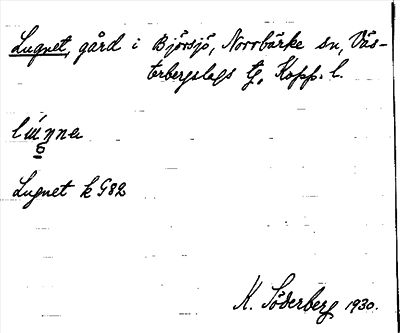 Lugnet, gård i Björsjö, Norrbärke sn, Väs-
terbergslags tg, Kopp. l.
Lugnet k G82
K. Söderberg 1930.